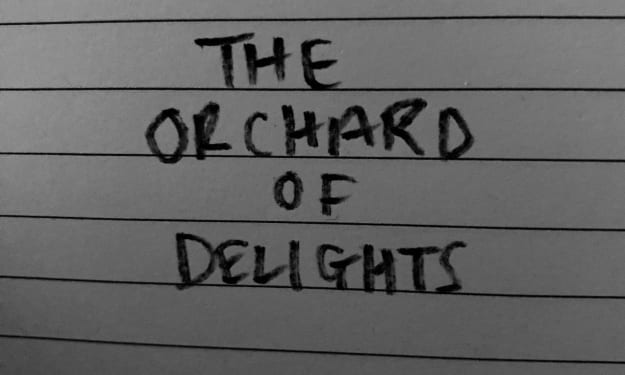 THE
ORCHARD
OF
DELIGHTS